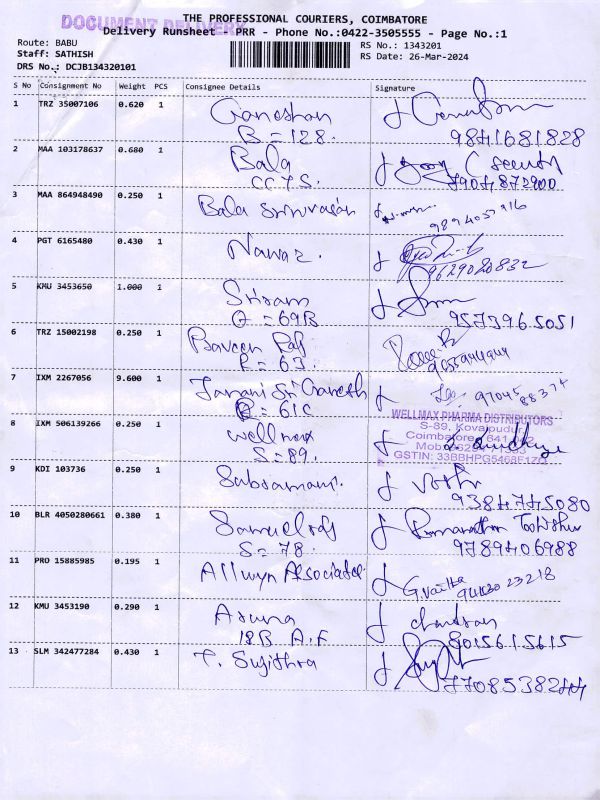 DOCUMENT DELIVERY
THE PROFESSIONAL COURIERS, COIMBATORE
Delivery Runsheet - PRR - Phone No.:0422-3505555 - Page No.:1
Route: BABU
Staff: SATHISH
DRS No.: DCJB134320101
RS No.: 1343201
RS Date: 26-Mar-2024
S No Consignment No Weight PCS Consignee Details Signature
1 TRZ 35007106 0.620 1 Ganeshan
B = 128. 9841681828
2 MAA 103178637 0.680 1 Bala
CCTS. 7904872900
3 MAA 864948490 0.250 1 Bala Srinivasan
4 PGT 6165480 0.430 1 Nawaz. 9629020832
5 KMU 3453650 1.000 1 Sriram
= 69B 9573965051
6 TRZ 15002198 0.250 1 Praveen Raj
R = 63. 9055944944
7 IXM 2267056 9.600 1 Janani Sri Ganesh 97045 88374
= 61C
8 IXM 506139266 0.250 1 Wellmax
S = 89.
WELLMAX PHARMA DISTRIBUTORS
S-89, Kovaipudur
Coimbatore - 641 042
GSTIN: 33BBHPG5468F1Z
9 KDI 103736 0.250 1 9384745080
10 BLR 4050280661 0.380 1 Samuelraj
S = 78. 9789406988
11 PRO 15885985 0.195 1 Allwyn Associates. 94430 23218
12 KMU 3453190 0.290 1 Aruna chandran
18B A.F 8015615615
13 SLM 342477284 0.430 1 T. Sujithra
7708538244